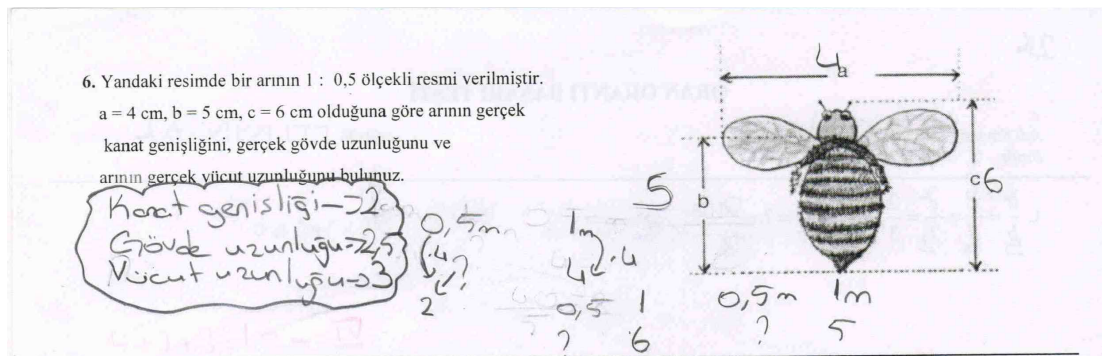 6. Yandaki resimde bir arının 1 : 0,5 ölçekli resmi verilmiştir.
a = 4 cm, b = 5 cm, c = 6 cm olduğuna göre arının gerçek
kanat genişliğini, gerçek gövde uzunluğunu ve
arının gerçek vücut uzunluğunu bulunuz.
Kanat genişliği→2
Gövde uzunluğu→2,5
Vücut uzunluğu→3
0,5m 1m
·4 ? 4 ·4
2 0,5 1
? 6
4
a
5
b
c 6
0,5m 1m
? 5